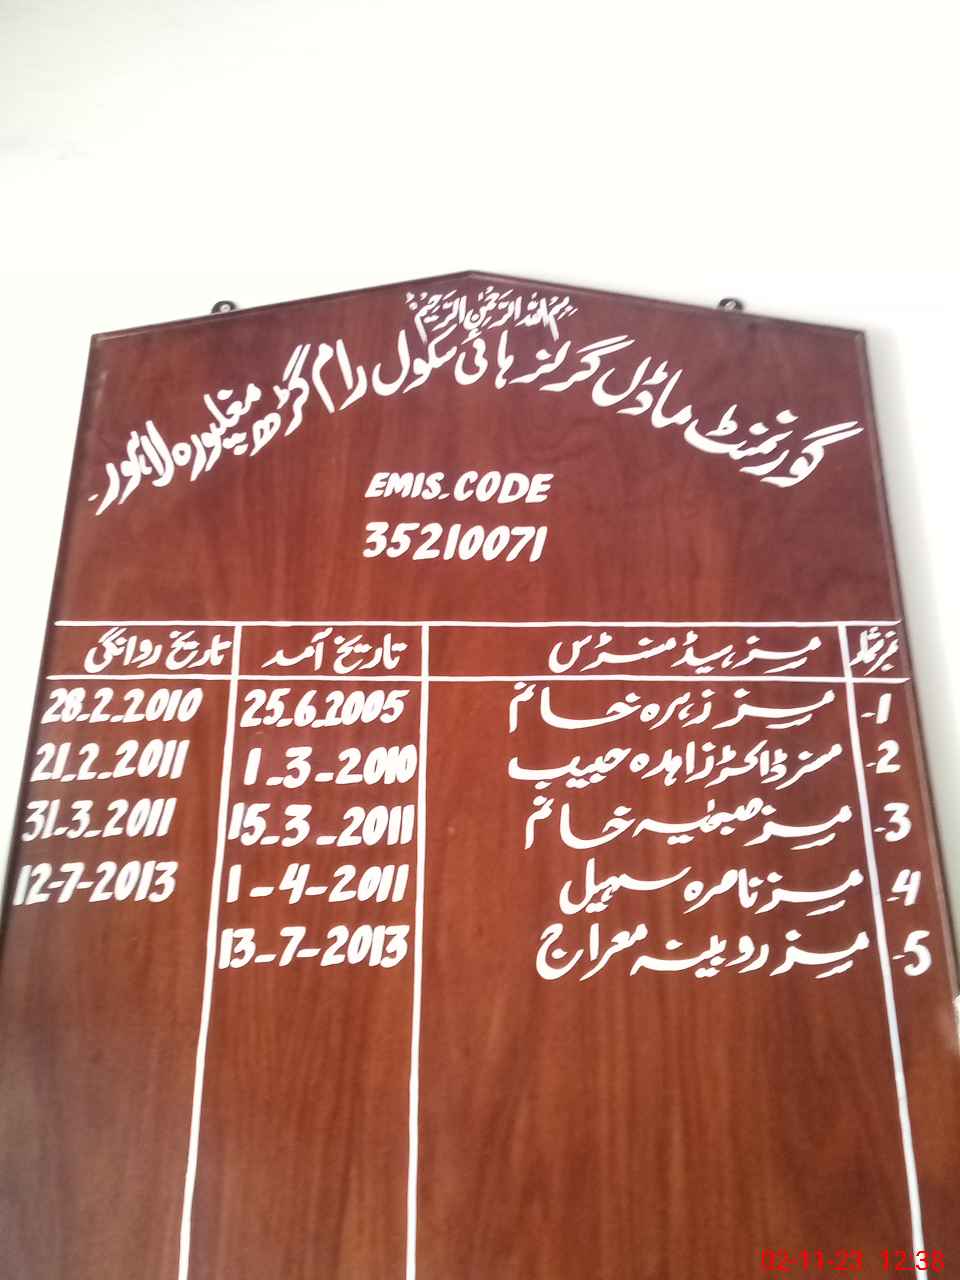 بسم اللہ الرحمٰن الرحیم
گورنمنٹ ماڈل گرلز ہائی سکول رام گڑھ مغلپورہ لاہور۔
EMIS. CODE
35210071
نمبر شمار مسز ہیڈ مسٹرس تاریخ آمد تاریخ روانگی
1- مسز زہرہ خانم 25.6.2005 28.2.2010
2- مسز ڈاکٹر زاہدہ حبیب 1-3-2010 21.2.2011
3- مسز صبحیہ خانم 15-3-2011 31-3-2011
4- مسز ناصرہ سہیل 1-4-2011 12-7-2013
5- مسز روبینہ معراج 13-7-2013
02-11-23 12:38